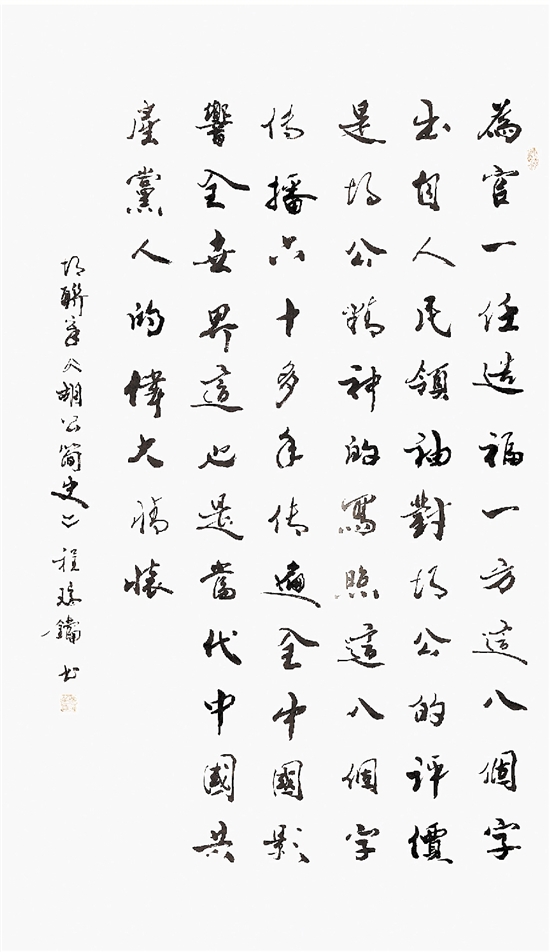 為官一任造福一方這八個字
出自人民領袖對胡公的評價
是胡公精神的寫照這八個字
傳播六十多年傳遍全中國影
響全世界這也是當代中國共
產黨人的偉大懷
胡聯章文胡公簡史二 程書